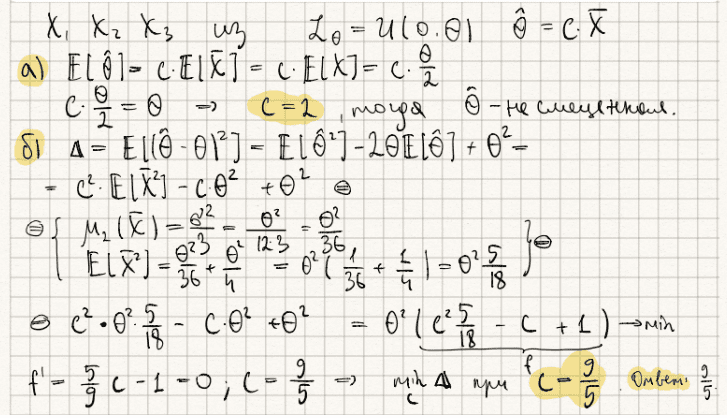 X₁ X₂ X₃ из ℒ_θ = U(0,θ) θ̂ = c·X̄
а) E[θ̂] = c·E[X̄] = c·E[X] = c·θ/2
c·θ/2 = θ ⇒ c = 2, тогда θ̂ - не смещенная.
б) Δ = E[(θ̂ - θ)²] = E[θ̂²] - 2θE[θ̂] + θ² =
= c²·E[X̄²] - c·θ² + θ² ⊜
⊜ { μ₂(X̄) = σ²/3 = θ²/12·3 = θ²/36
E[X̄²] = θ²/36 + θ²/4 = θ²(1/36 + 1/4) = θ² 5/18 } ⊜
⊜ c²·θ²·5/18 - c·θ² + θ² = θ²(c² 5/18 - c + 1) → min
f
f' = 5/9 c - 1 = 0; c = 9/5 ⇒ min_c Δ при c = 9/5. Ответ: 9/5